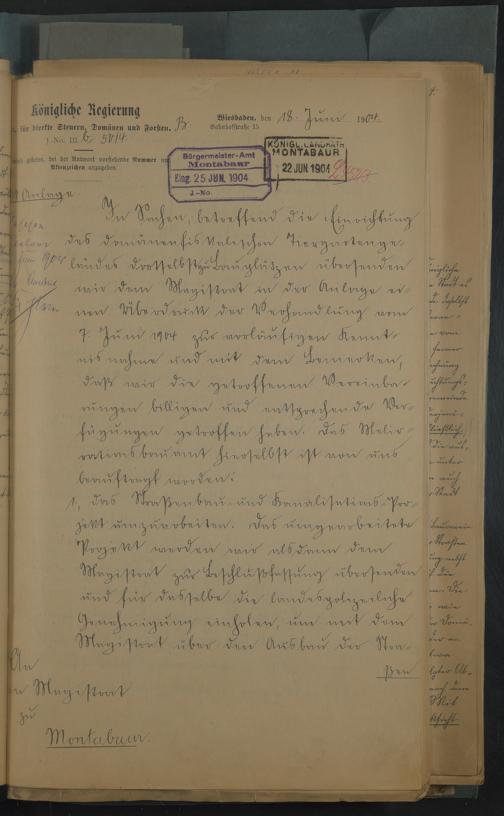 Königliche Regierung
für direkte Steuern, Domänen und Forsten. B
J.-No. III b 5414
Wiesbaden, den 18. Juni 1904.
Bahnhofstraße 15
gebeten, bei der Antwort vorstehende Nummer
Aktenzeichen anzugeben.
Bürgermeister-Amt
Montabaur
Eing. 25 JUN. 1904
J.-No.
KÖNIGL. LANDRATH
MONTABAUR
22 JUN. 1904
Anlage
In Sachen, betreffend die Einrichtung
des domänenfiskalischen Tiergartenge-
ländes dortselbst zu Bauplätzen übersenden
wir dem Magistrat in der Anlage ei-
nen Überdruck der Verhandlung vom
7. Juni 1904 zur vorläufigen Kennt-
nisnahme und mit dem Bemerken,
daß wir die getroffenen Vereinba-
rungen billigen und entsprechende Ver-
fügungen getroffen haben. Das Melio-
rationsbauamt hierselbst ist von uns
beauftragt worden:
1, das Straßenbau- und Kanalisations-Pro-
jekt umzuarbeiten. Das umgearbeitete
Projekt werden wir alsdann dem
Magistrat zur Beschlußfassung übersenden
und für dasselbe die landespolizeiliche
Genehmigung einholen, um mit dem
Magistrat über den Ausbau der Stra-
ßen
An
Magistrat
zu
Montabaur.